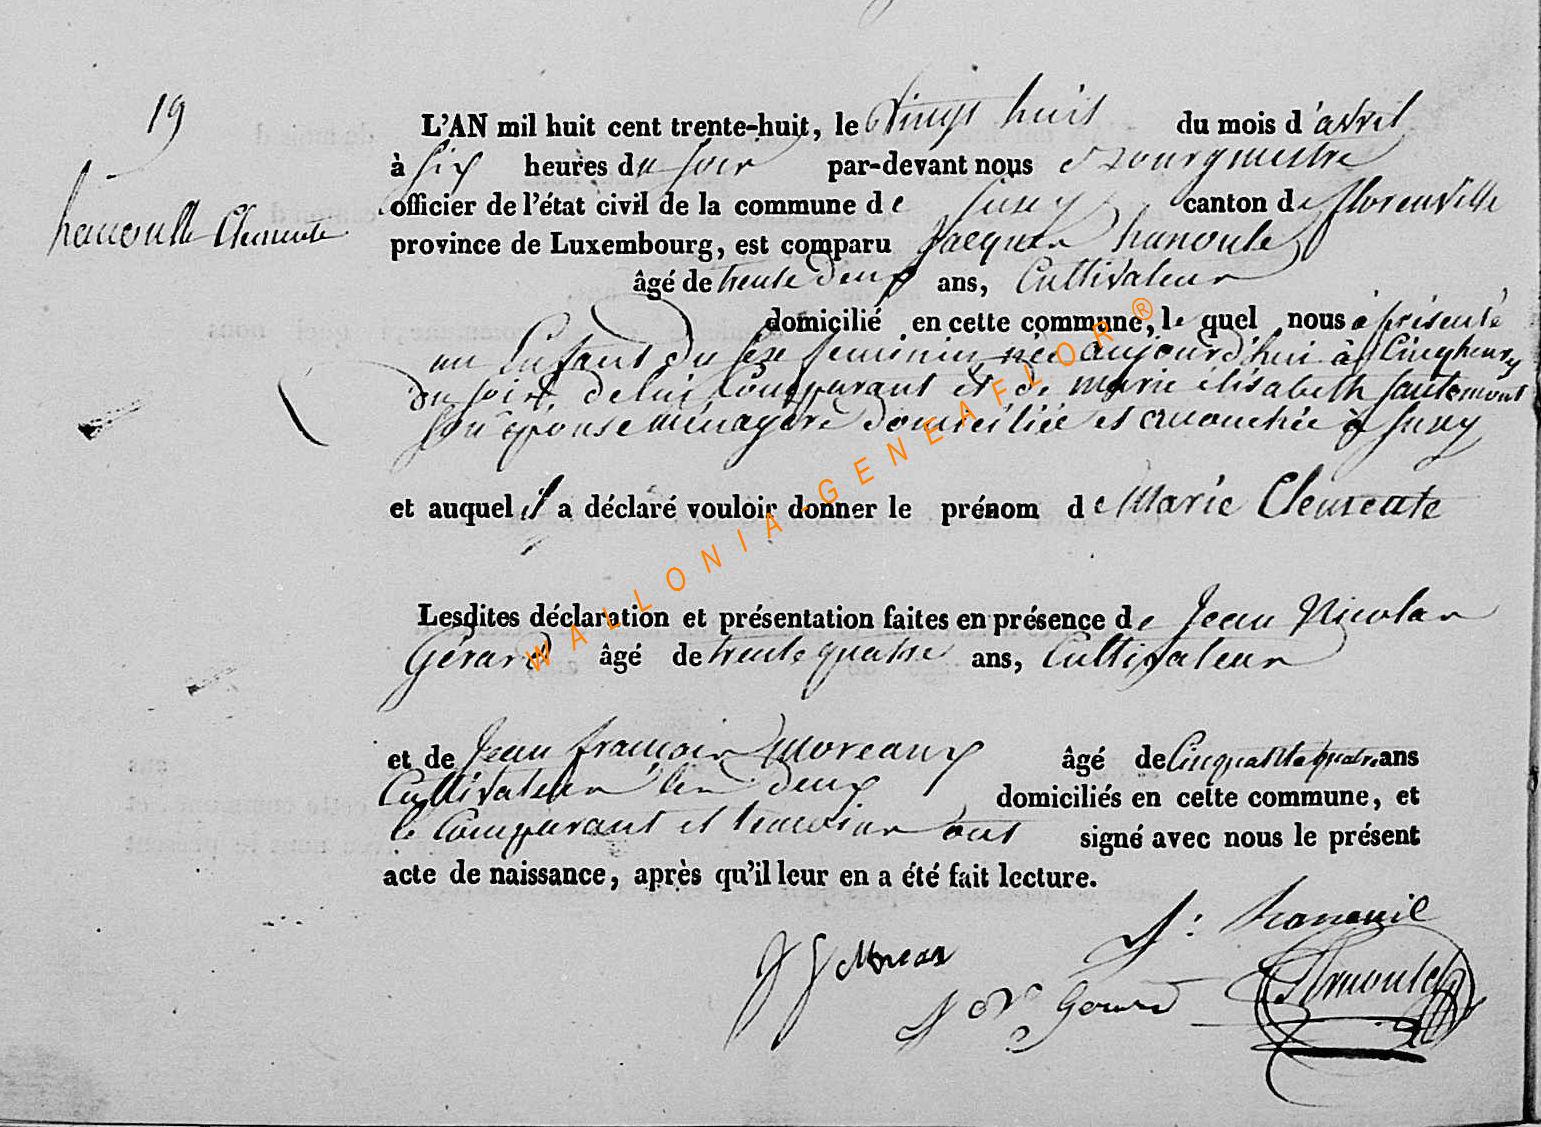 19
hanoulle Clemente
L'AN mil huit cent trente-huit, le vingt huit du mois d'avril
à six heures du soir par-devant nous Bourgmestre
officier de l'état civil de la commune de Suxy canton de florenville
province de Luxembourg, est comparu Jacques hanoule
âgé de trente deux ans, Cultivateur
domicilié en cette commune, le quel nous à présenté
un Enfant du sexe feminin née aujourd'hui à Cinq heures
du soir de lui Comparant et de marie élisabeth
son épouse ménagère domiciliée et accouchée à Suxy
et auquel il a déclaré vouloir donner le prénom de Marie Clemente
Lesdites déclaration et présentation faites en présence de Jean Nicolas
Gérard âgé de trente quatre ans, Cultivateur
et de Jean françois Moreaux âgé de Cinquante quatre ans
Cultivateur les deux domiciliés en cette commune, et
le Comparant et temoins ont signé avec nous le présent
acte de naissance, après qu'il leur en a été fait lecture.
WALLONIA-GENEAFLOR®